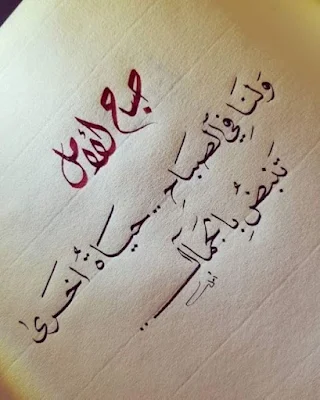 صباح الأمل
وَلنَا فِي الصبَاحِ .. حيَاةٌ أخرَىٰ
تَنبضُ بالجمَالِ ..